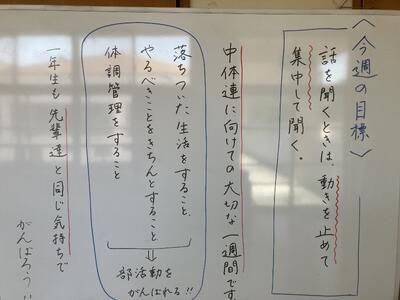 〈今週の目標〉
話を聞くときは、動きを止めて
集中して聞く。
中体連に向けての大切な一週間です
落ちついた生活をすること、
やるべきことをきちんとすること
体調管理をすること
⇒ 部活動を
がんばれる!!
一年生も先輩達と同じ気持ちで
がんばろう!!